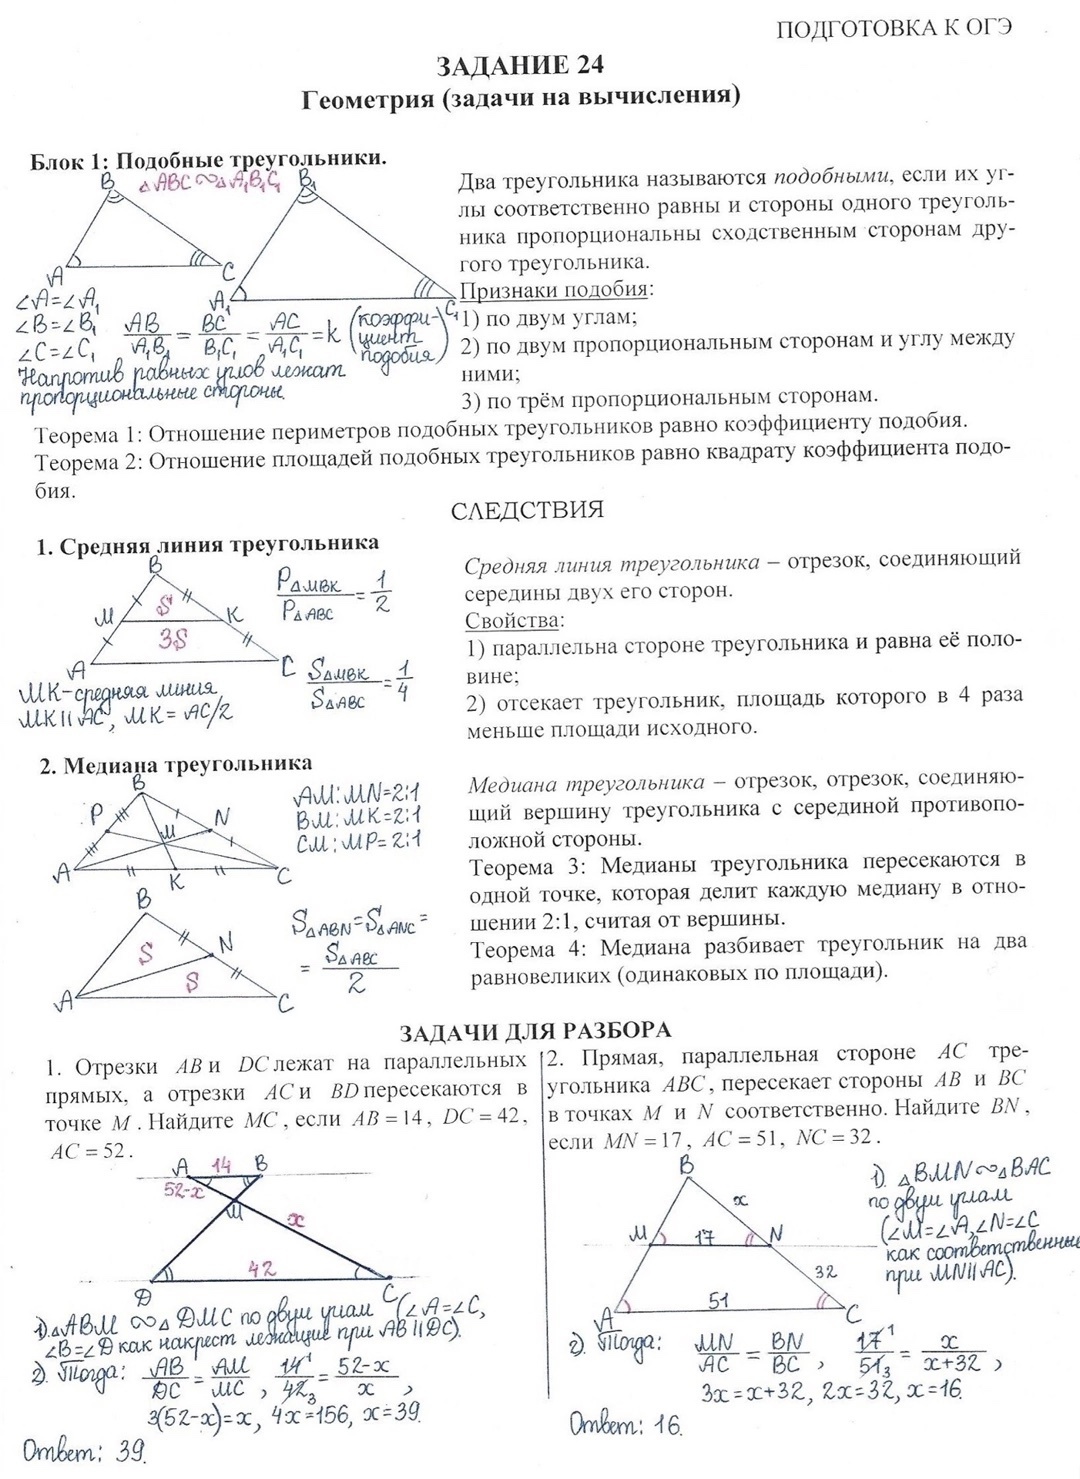 ПОДГОТОВКА К ОГЭ
ЗАДАНИЕ 24
Геометрия (задачи на вычисления)
Блок 1: Подобные треугольники.
△ABC ∾ △A₁B₁C₁
B
B₁
A
C
A₁
C₁
∠A=∠A₁
∠B=∠B₁
∠C=∠C₁
AB/A₁B₁ = BC/B₁C₁ = AC/A₁C₁ = k (коэффи-
циент
подобия)
Напротив равных углов лежат
пропорциональные стороны.
Два треугольника называются подобными, если их уг-
лы соответственно равны и стороны одного треуголь-
ника пропорциональны сходственным сторонам дру-
гого треугольника.
Признаки подобия:
1) по двум углам;
2) по двум пропорциональным сторонам и углу между
ними;
3) по трём пропорциональным сторонам.
Теорема 1: Отношение периметров подобных треугольников равно коэффициенту подобия.
Теорема 2: Отношение площадей подобных треугольников равно квадрату коэффициента подо-
бия.
СЛЕДСТВИЯ
1. Средняя линия треугольника
B
M
S
K
3S
A
C
P△MBK/P△ABC = 1/2
S△MBK/S△ABC = 1/4
MK-средняя линия
MK||AC, MK= AC/2
Средняя линия треугольника – отрезок, соединяющий
середины двух его сторон.
Свойства:
1) параллельна стороне треугольника и равна её поло-
вине;
2) отсекает треугольник, площадь которого в 4 раза
меньше площади исходного.
2. Медиана треугольника
B
P
M
N
A
K
C
AM:MN=2:1
BM:MK=2:1
CM:MP=2:1
B
N
S
S
A
C
S△ABN=S△ANC=
= S△ABC/2
Медиана треугольника – отрезок, отрезок, соединяю-
щий вершину треугольника с серединой противопо-
ложной стороны.
Теорема 3: Медианы треугольника пересекаются в
одной точке, которая делит каждую медиану в отно-
шении 2:1, считая от вершины.
Теорема 4: Медиана разбивает треугольник на два
равновеликих (одинаковых по площади).
ЗАДАЧИ ДЛЯ РАЗБОРА
1. Отрезки AB и DC лежат на параллельных
прямых, а отрезки AC и BD пересекаются в
точке M. Найдите MC, если AB = 14, DC = 42,
AC = 52.
A
14
B
52-x
M
x
42
D
C
1). △ABM ∾ △DMC по двум углам (∠A=∠C,
∠B=∠D как накрест лежащие при AB||DC).
2). Тогда: AB/DC = AM/MC, 14¹/42₃ = 52-x/x,
3(52-x)=x, 4x=156, x=39.
Ответ: 39.
2. Прямая, параллельная стороне AC тре-
угольника ABC, пересекает стороны AB и BC
в точках M и N соответственно. Найдите BN,
если MN = 17, AC = 51, NC = 32.
B
x
M
17
N
32
51
A
C
1). △BMN ∾ △BAC
по двум углам
(∠M=∠A, ∠N=∠C
как соответственные
при MN||AC).
2). Тогда: MN/AC = BN/BC, 17¹/51₃ = x/x+32,
3x=x+32, 2x=32, x=16.
Ответ: 16.